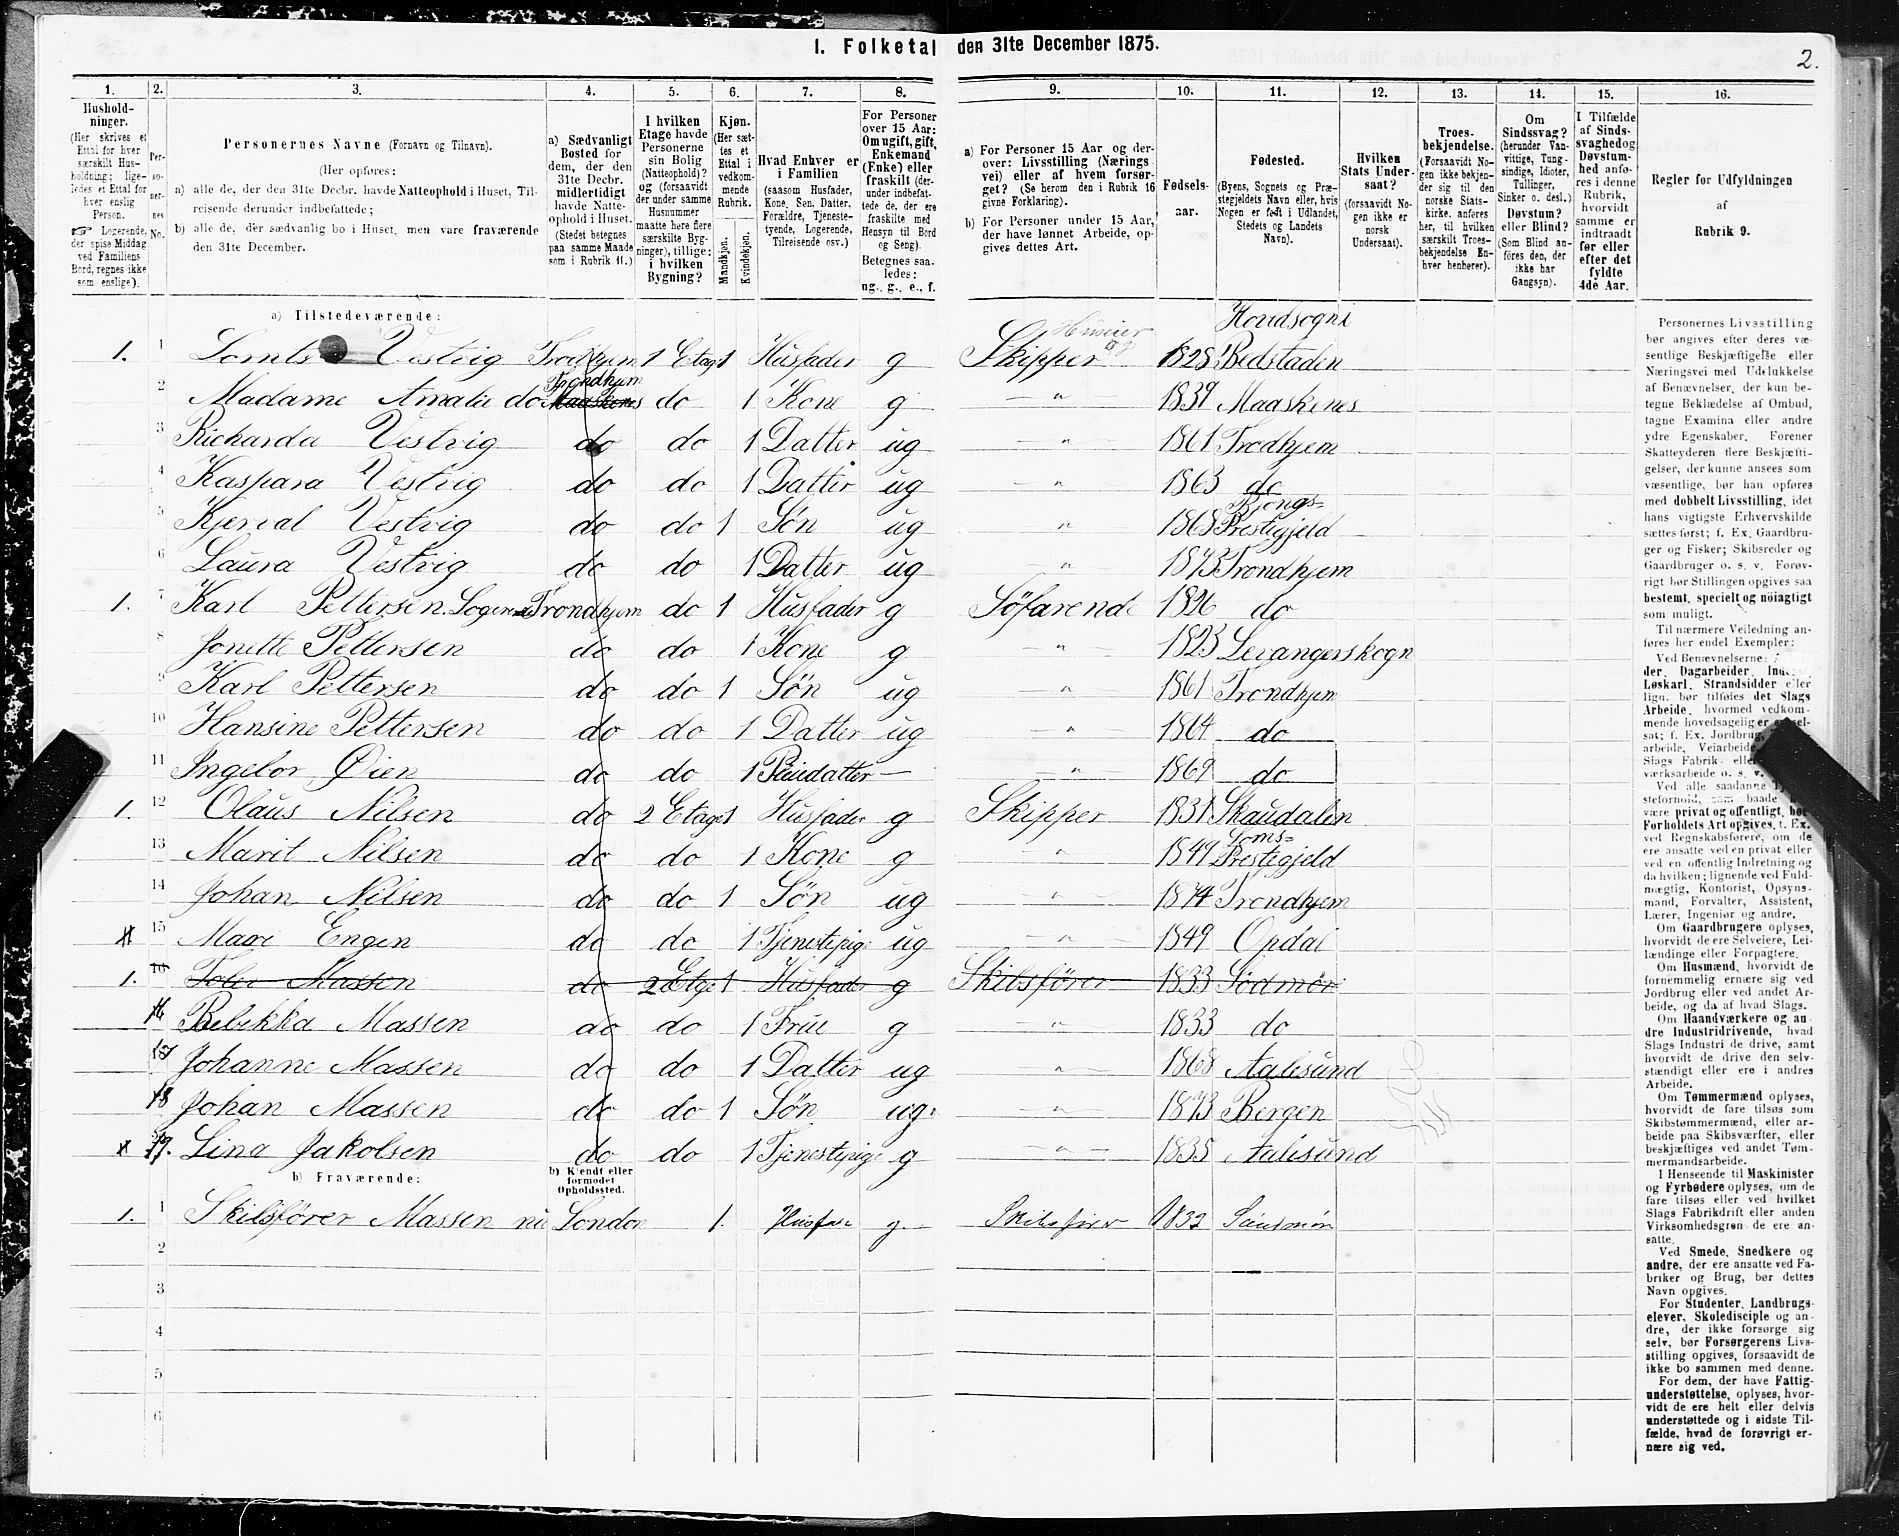 1. Folketal den 31te December 1875.
2.
1. 2. 3. 4. 5. 6. 7. 8. 9. 10. 11. 12. 13. 14. 15. 16.
Hushold-
ninger.
(Her skrives et
Ettal for hver
særskilt Hus-
holdning; lige-
ledes et Ettal for
hver enslig
Person.
☞ Logerende,
der spise Middag
ved Familiens
Bord, regnes ikke
som enslige).
Per-
so-
ner-
nes
No.
Personernes Navne (Fornavn og Tilnavn).
(Her opføres:
a) alle de, der den 31te Decbr. havde Natteophold i Huset, Til-
reisende derunder indbefattede;
b) alle de, der sædvanlig bo i Huset, men vare fraværende
den 31te December.
a) Sædvanligt
Bosted for
dem, der den
31te Decem-
ber havde
midlertidigt
Natte-
ophold i Huset.
(Stedet betegnes
paa samme Maade
som i Rubrik 11.)
I hvilken
Etage havde
Personerne
sin Bolig
(Natteophold)?
og (forsaavidt
der under samme
Husnummer
maatte høre flere
særskilte Byg-
ninger), tillige:
i hvilken
Bygning?
Kjøn.
(Her sæt-
tes et
Ettal i
vedkom-
mende
Rubrik.
Mandkjøn.
Kvindekjøn.
Hvad Enhver er
i Familien
(saasom Husfader,
Kone, Søn, Datter,
Forældre, Tjeneste-
tyende, Logerende,
Tilreisende osv.)
For Personer
over 15 Aar:
Om ugift, gift,
Enkemand
(Enke) eller
fraskilt (der-
under indbefat-
tede de, der ere
fraskilte med
Hensyn til Bord
og Seng).
Betegnes saa-
ledes:
ug., g., e., f.
a) For Personer 15 Aar og der-
over: Livsstilling (Nærings
vei) eller af hvem forsør-
get? (Se herom den i Rubrik 16
givne Forklaring).
b) For Personer under 15 Aar,
der have lønnet Arbeide, op-
gives dettes Art.
Fødsels-
aar.
Fødested.
(Byens, Sognets og Præ-
stegjeldets Navn eller, hvis
Nogen er født i Udlandet,
Stedets og Landets
Navn).
Hvilken
Stats Under-
saat?
(forsaavidt No-
gen ikke er
norsk
Undersaat).
Troes-
bekjendelse.
(Forsaavidt No-
gen ikke bekjen-
der sig til den
norske Stats-
kirke, anføres
her, til hvilken
særskilt Troes-
bekjendelse En-
hver henhører).
Om
Sindssvag?
(herunder Van-
vittige, Tung-
sindige, Idioter,
Tullinger,
Sinker o. desl.)
Døvstum?
eller Blind?
(Som Blind an-
føres den, der
ikke har
Gangsyn).
I Tilfælde
af Sinds-
svaghed og
Døvstum-
hed anfø-
res i denne
Rubrik,
hvorvidt
samme er
indtraadt
før eller
efter det
fyldte
4de Aar.
Regler for Udfyldningen
af
Rubrik 9.
a) Tilstedeværende:
Hovdsogni
1. 1 Lornts Vestvig Trondhjem 1 Etage 1 Husfader g Skipper 1828 Bedstaden
Trondhjem
2 Madame Amalie do Maaskenes do 1 Kone g " 1839 Maaskenes
3 Richarda Vestvig do do 1 Datter ug " 1861 Trodhjem
4 Kaspara Vestvig do do 1 Datter ug " 1863 do
5 Kjerval Vestvig do do 1 Søn ug " 1868 Prestigjeld
6 Laura Vestvig do do 1 Datter ug " 1873 Trondhjem
1. 7 Karl Pettersen. Trondhjem do 1 Husfader g Söfarende 1826 do
8 Jonette Pettersen do do 1 Kone g " 1823 Levangerskogn
9 Karl Pettersen do do 1 Søn ug " 1861 Trondhjem
10 Hansine Pettersen do do 1 Datter ug " 1864 do
11 Ingebor Øien do do 1 Pleiedatter — " 1869 do
1. 12 Olaus Nilsen do 2 Etage 1 Husfader g Skipper 1831 Skaudalen
13 Marit Nilsen do do 1 Kone g " 1849 Prestegjeld
14 Johan Nilsen do do 1 Søn ug " 1874 Trondhjem
15 Mari Engen do do 1 Tjenestepige ug " 1849 Opdal
1. 16 Massen do 2 Etge 1 Husfader g Skibsfører 1833 Södmör
16 Bebekka Massen do do 1 Frue g " 1833 do
17 Johanne Massen do do 1 Datter ug " 1868 Aalesund
18 Johan Massen do do 1 Søn ug. " 1873 Bergen
19. Lina Jakobsen do do 1 Tjenestepige g " 1835 Aalesund
b) Fraværende:
b) Kjendt eller
formodet
Opholdssted.
1. 1 Skibsfører Massen nu London 1. Husfa g Skibsfører 1832 Söndmör
2
3
4
5
6
Personernes Livsstilling
bør angives efter deres væ-
sentlige Beskjæftigelse eller
Næringsvei med Udelukkelse
af Benævnelser, der kun be-
tegne Beklædelse af Ombud,
tagne Examina eller andre
ydre Egenskaber. Forener
Skatteyderen flere Beskjæfti-
gelser, der kunne ansees som
væsentlige, bør han opføres
med dobbelt Livsstilling, idet
hans vigtigste Erhvervskilde
sættes først; f. Ex. Gaardbru-
ger og Fisker; Skibsreder og
Gaardbruger o. s. v. Forøv-
rigt bør Stillingen opgives saa
bestemt, specielt og nöiagtigt
som muligt.
Til nærmere Veiledning an-
føres her endel Exempler:
Ved Benævnelserne:
der, Dagarbeider,
Løskarl, Strandsidder eller
lign. bør tilføies det Slags
Arbeide, hvormed vedkom-
mende hovedsagelig er
sat; f. Ex. Jordbrug,
arbeide, Veiarbeide
Slags Fabrik- eller
værksarbeide o. s. v.
Ved alle saadanne
steforhold, som baade
være privat og offentligt, bør
Forholdets Art opgives, t. Ex.
ved Regnskabsførere, om de
ere ansatte ved en privat eller
ved en offentlig Indretning og
da hvilken; lignende ved Fuld-
mægtig, Kontorist, Opsyns-
mand, Forvalter, Assistent,
Lærer, Ingeniør og andre.
Om Gaardbrugere oplyses,
hvorvidt de ere Selveiere, Lei-
lændinge eller Forpagtere.
Om Husmænd, hvorvidt de
fornemmelig ernære sig ved
Jordbrug eller ved andet Ar-
beide, og da af hvad Slags.
Om Haandværkere og an-
dre Industridrivende, hvad
Slags Industri de drive, samt
hvorvidt de drive den selv-
stændigt eller ere i andres
Arbeide.
Om Tømmermænd oplyses,
hvorvidt de fare tilsøs som
Skibstømmermænd, eller ar-
beide paa Skibsværfter, eller
beskjæftiges ved andet Tøm-
mermandsarbeide.
I Henseende til Maskinister
og Fyrbødere oplyses, om de
fare tilsøs eller ved hvilket
Slags Fabrikdrift eller anden
Virksomhedsgren de ere an-
satte.
Ved Smede, Snedkere og
andre, der ere ansatte ved Fa-
briker og Brug, bør dettes
Navn opgives.
For Studenter, Landbrugs-
elever, Skoledisciple og an-
dre, der ikke forsørge sig
selv, bør Forsørgerens Livs-
stilling opgives, forsaavidt de
ikke bo sammen med denne.
For dem, der have Fattig-
understøttelse, oplyses, hvor-
vidt de ere helt eller delvis
understøttede og i sidste Til-
fælde, hvad de forøvrigt er-
nære sig ved.